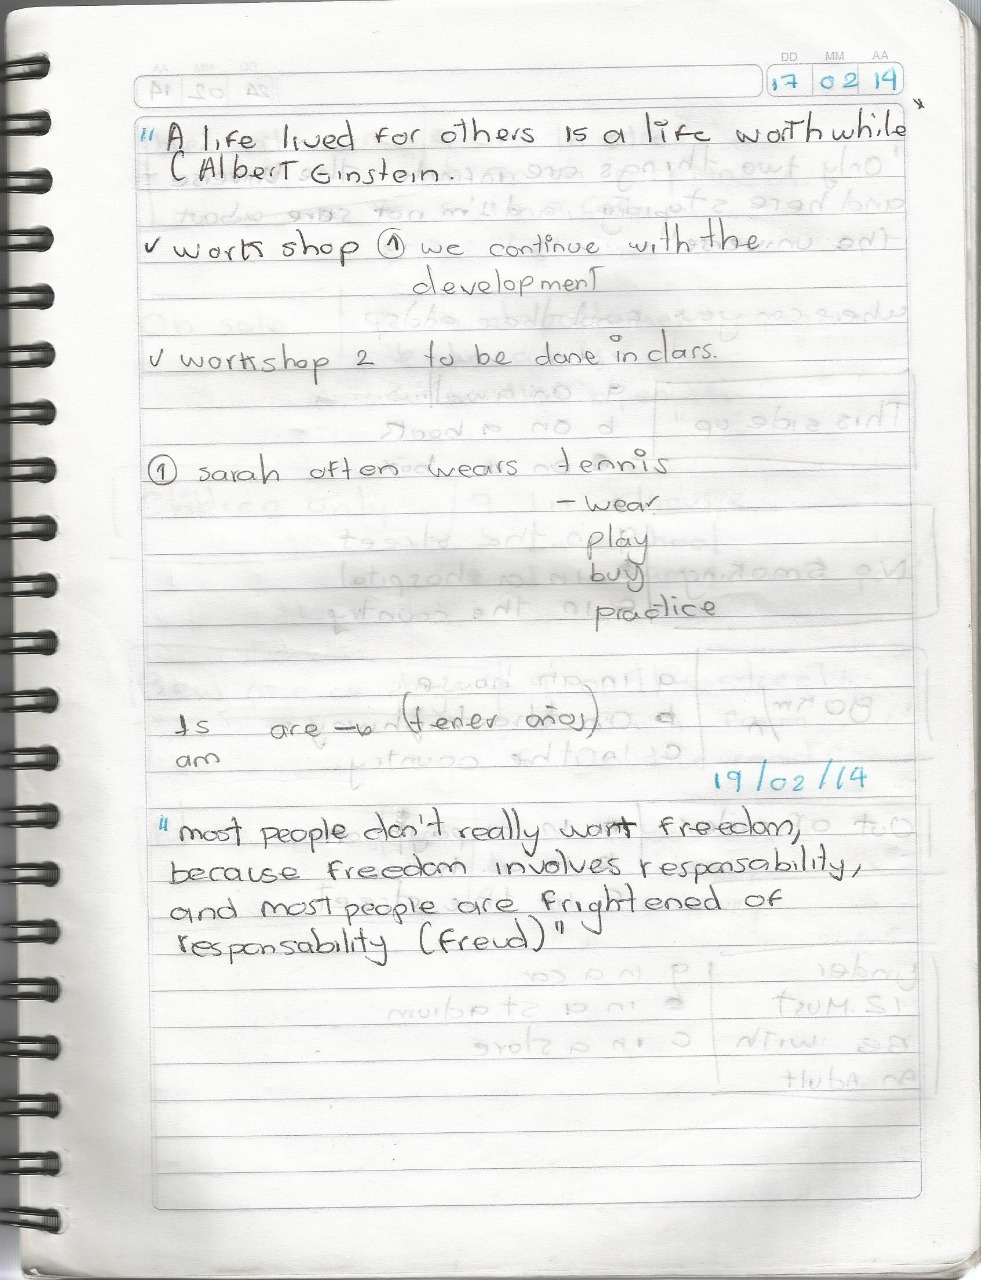 DD MM AA
17 02 14
" A life lived for others is a life worthwhile
( Albert Einstein.
✓ work shop ① we continue with the
development
✓ workshop 2 to be done in class.
① sarah often wears tennis
- wear
play
buy
practice
Is are → (tener años)
am
19/02/14
" most people don't really want freedom,
because freedom involves responsability,
and most people are frightened of
responsability (Freud)"